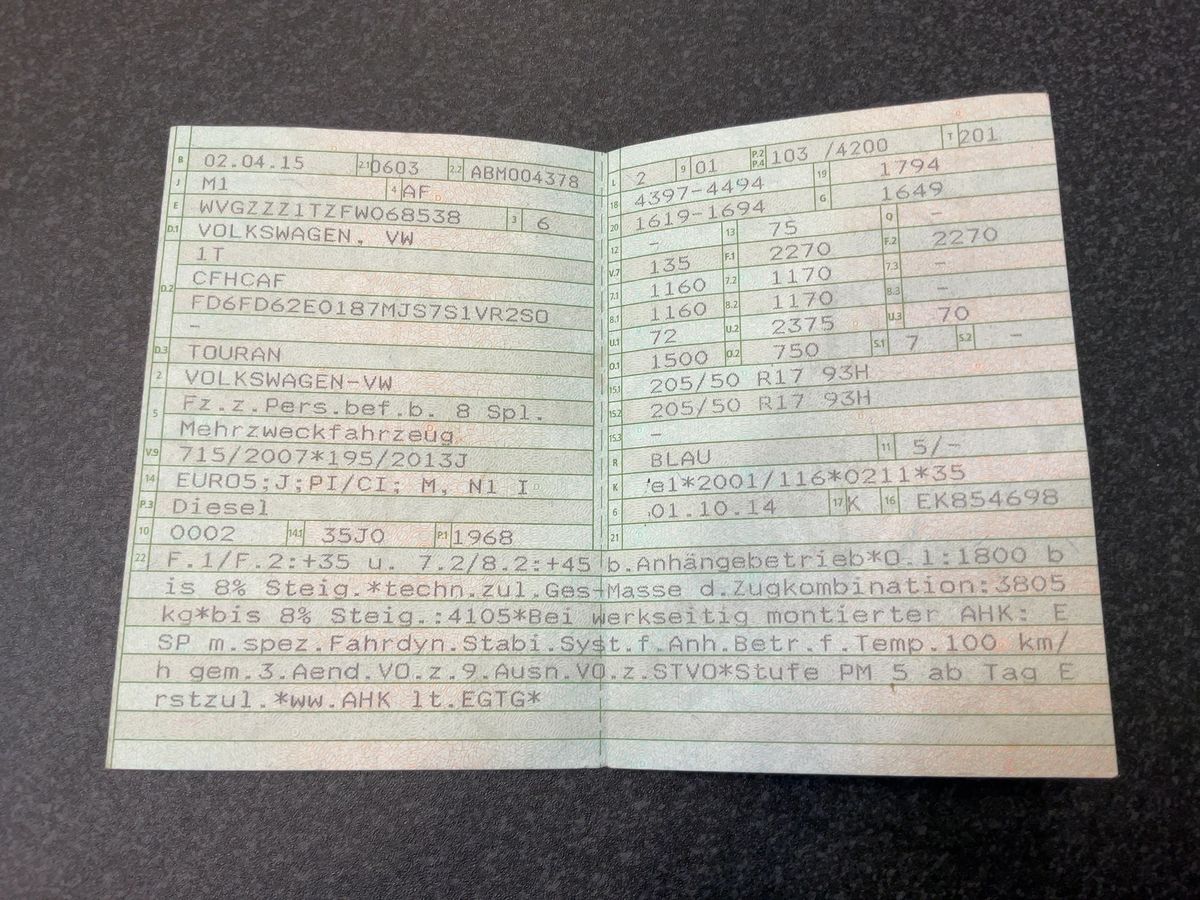 B 02.04.15 2.1 0603 2.2 ABM004378
J M1 4 AF
E WVGZZZ1TZFW068538 3 6
D.1 VOLKSWAGEN, VW
D.2 1T
CFHCAF
FD6FD62E0187MJS7S1VR2S0
–
D.3 TOURAN
2 VOLKSWAGEN-VW
5 Fz.z.Pers.bef.b. 8 Spl.
Mehrzweckfahrzeug
V.9 715/2007*195/2013J
14 EURO5;J;PI/CI; M, N1 I
P.3 Diesel
10 0002 14.1 35J0 P.1 1968
L 2 9 01 P.2 P.4 103 /4200 T 201
18 4397-4494 19 1794
20 1619-1694 G 1649
12 – 13 75 Q –
V.7 135 F.1 2270 F.2 2270
7.1 1160 7.2 1170 7.3 –
8.1 1160 8.2 1170 8.3 –
U.1 72 U.2 2375 U.3 70
O.1 1500 O.2 750 S.1 7 S.2 –
15.1 205/50 R17 93H
15.2 205/50 R17 93H
15.3 –
R BLAU 11 5/-
K e1*2001/116*0211*35
6 01.10.14 17 K 16 EK854698
21
22 F.1/F.2:+35 u. 7.2/8.2:+45 b.Anhängebetrieb*O.1:1800 b
is 8% Steig.*techn.zul.Ges-Masse d.Zugkombination:3805
kg*bis 8% Steig.:4105*Bei werkseitig montierter AHK: E
SP m.spez.Fahrdyn.Stabi.Syst.f.Anh.Betr.f.Temp.100 km/
h gem.3.Aend.VO.z.9.Ausn.VO.z.STVO*Stufe PM 5 ab Tag E
rstzul.*ww.AHK lt.EGTG*